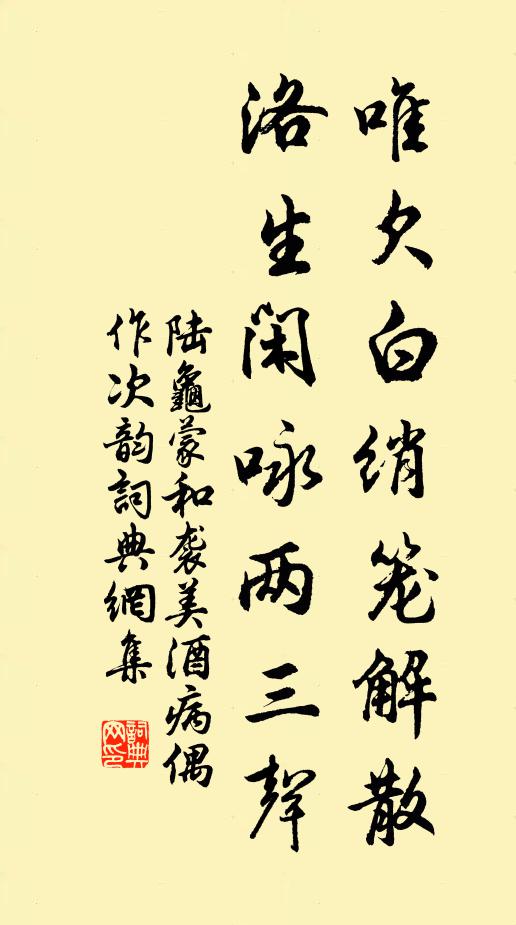 唯欠白绡笼解散
洛生闲咏两三聲
陆龜蒙和袭美酒病偶
作次韵詞典網集
詞典